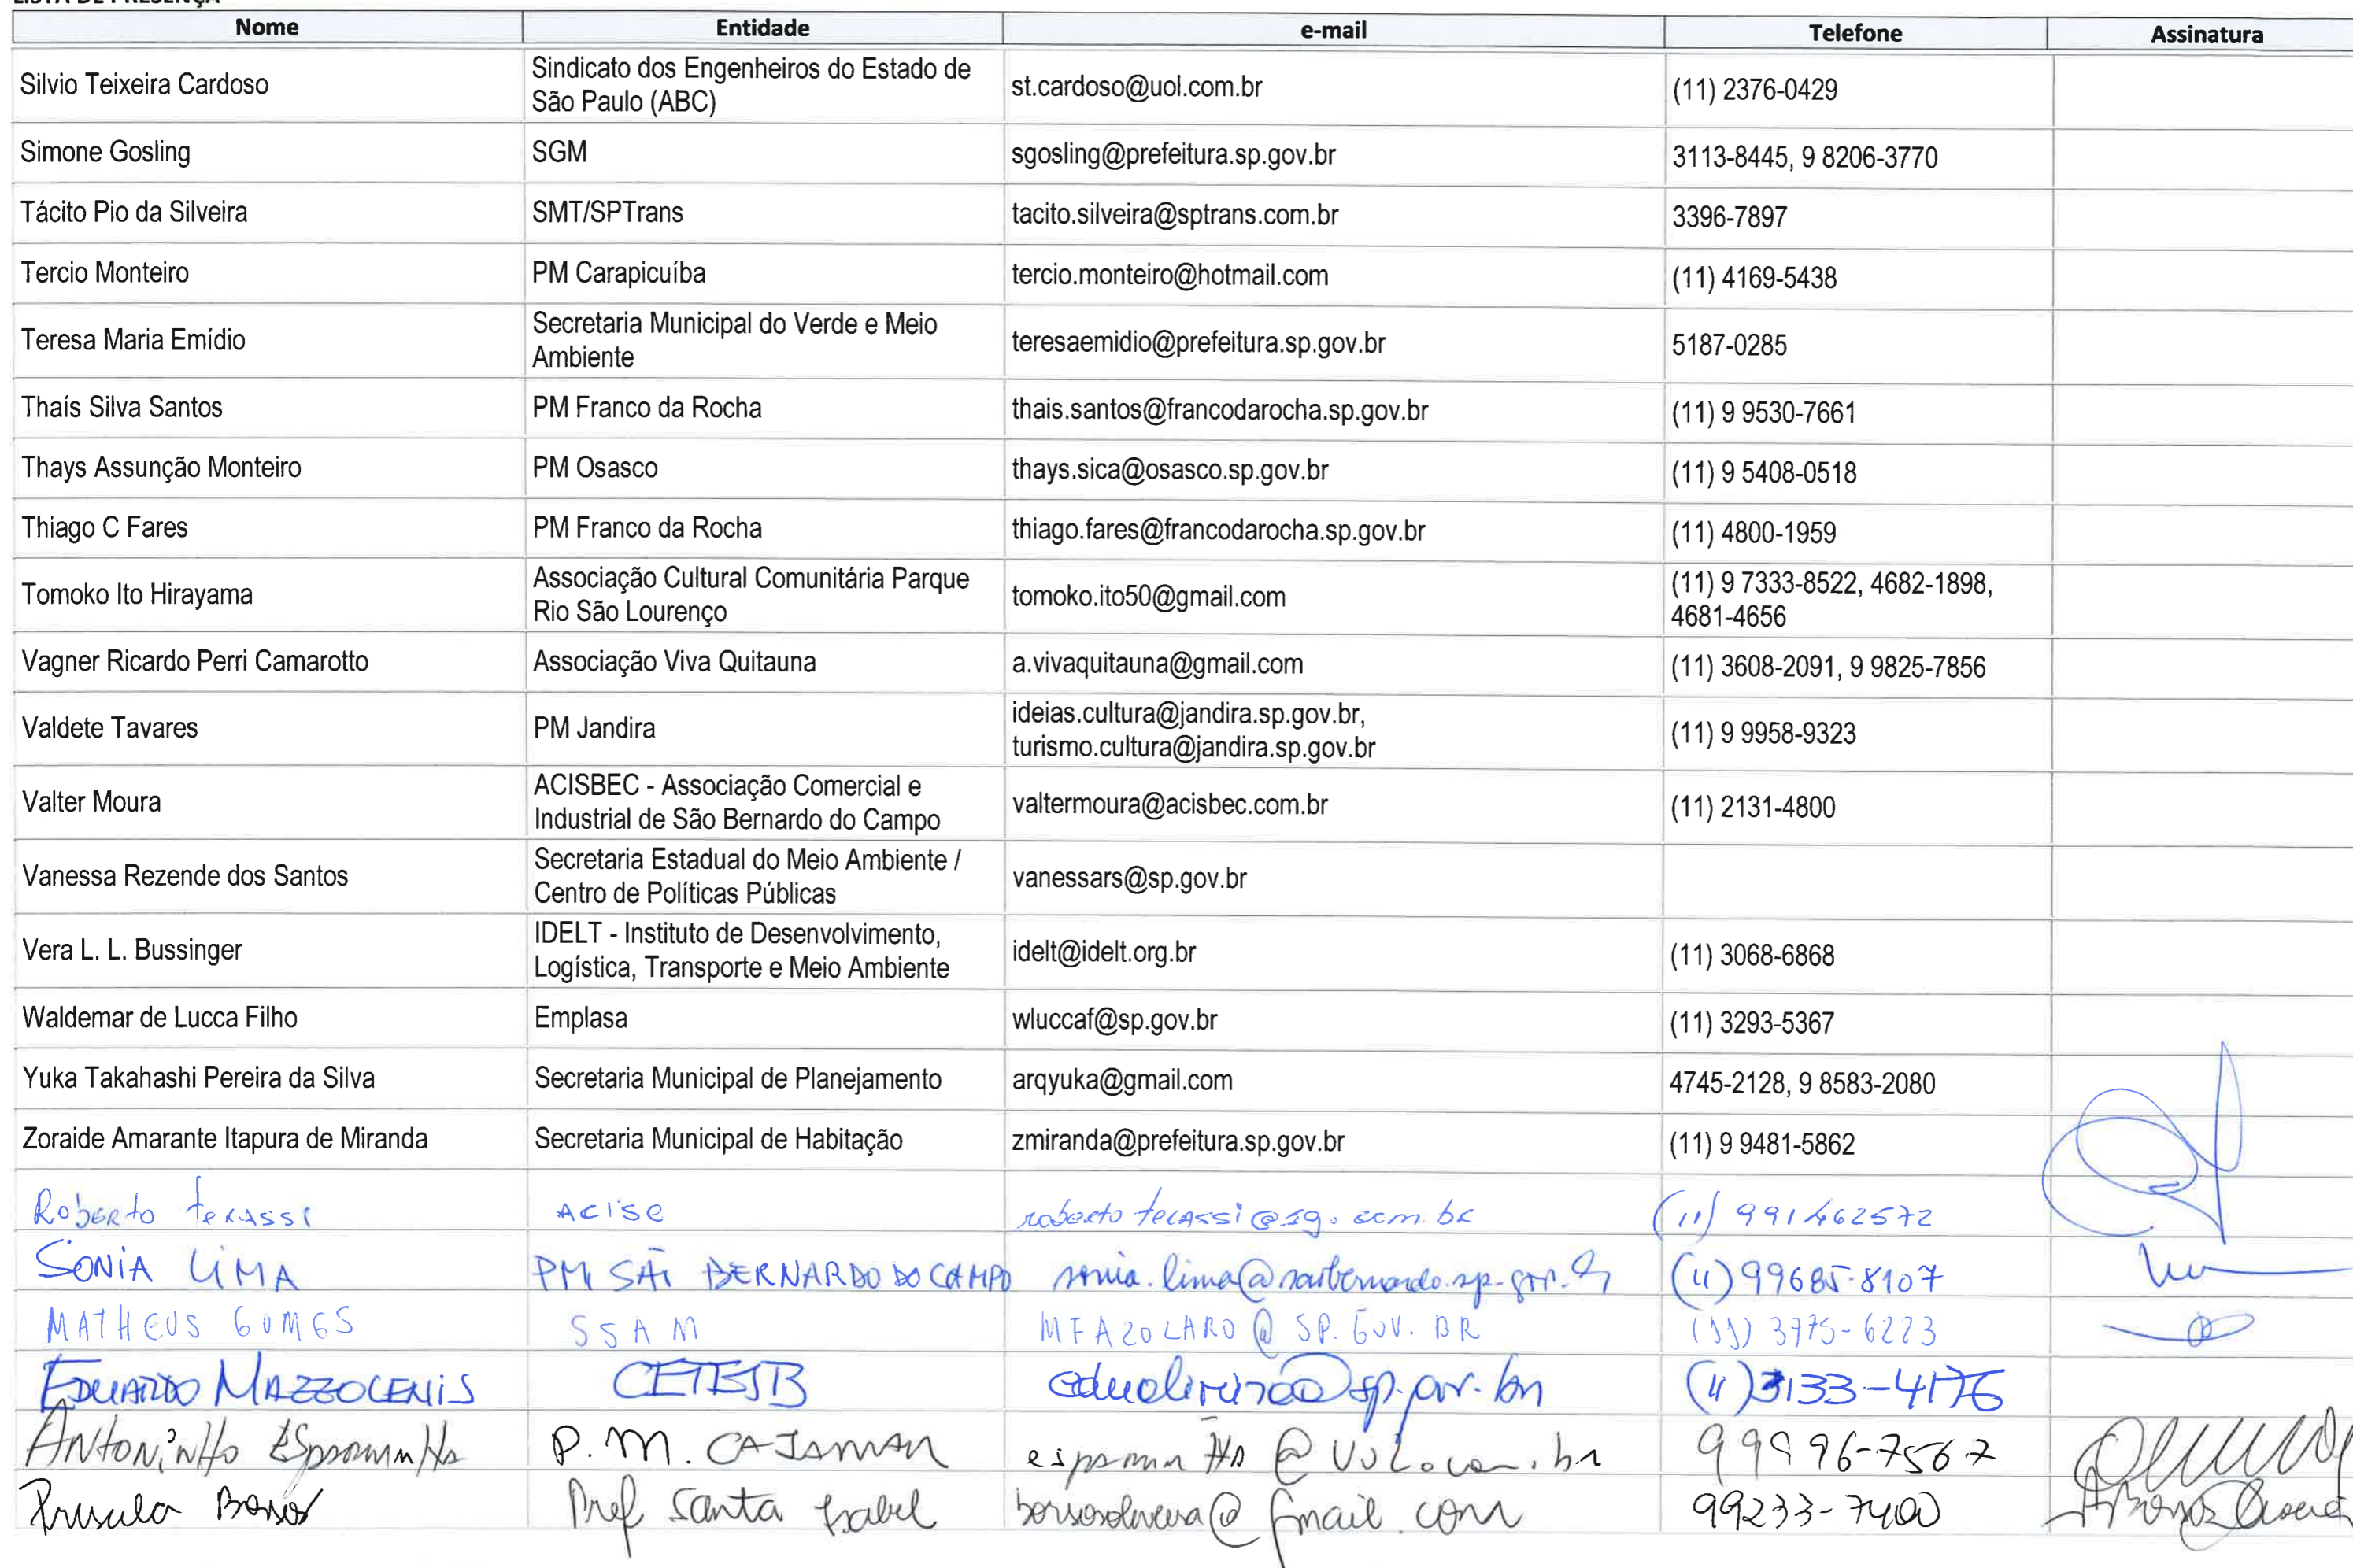 LISTA DE PRESENÇA
Nome Entidade e-mail Telefone Assinatura
Silvio Teixeira Cardoso Sindicato dos Engenheiros do Estado de São Paulo (ABC) st.cardoso@uol.com.br (11) 2376-0429
Simone Gosling SGM sgosling@prefeitura.sp.gov.br 3113-8445, 9 8206-3770
Tácito Pio da Silveira SMT/SPTrans tacito.silveira@sptrans.com.br 3396-7897
Tercio Monteiro PM Carapicuíba tercio.monteiro@hotmail.com (11) 4169-5438
Teresa Maria Emídio Secretaria Municipal do Verde e Meio Ambiente teresaemidio@prefeitura.sp.gov.br 5187-0285
Thaís Silva Santos PM Franco da Rocha thais.santos@francodarocha.sp.gov.br (11) 9 9530-7661
Thays Assunção Monteiro PM Osasco thays.sica@osasco.sp.gov.br (11) 9 5408-0518
Thiago C Fares PM Franco da Rocha thiago.fares@francodarocha.sp.gov.br (11) 4800-1959
Tomoko Ito Hirayama Associação Cultural Comunitária Parque Rio São Lourenço tomoko.ito50@gmail.com (11) 9 7333-8522, 4682-1898, 4681-4656
Vagner Ricardo Perri Camarotto Associação Viva Quitauna a.vivaquitauna@gmail.com (11) 3608-2091, 9 9825-7856
Valdete Tavares PM Jandira ideias.cultura@jandira.sp.gov.br, turismo.cultura@jandira.sp.gov.br (11) 9 9958-9323
Valter Moura ACISBEC - Associação Comercial e Industrial de São Bernardo do Campo valtermoura@acisbec.com.br (11) 2131-4800
Vanessa Rezende dos Santos Secretaria Estadual do Meio Ambiente / Centro de Políticas Públicas vanessars@sp.gov.br
Vera L. L. Bussinger IDELT - Instituto de Desenvolvimento, Logística, Transporte e Meio Ambiente idelt@idelt.org.br (11) 3068-6868
Waldemar de Lucca Filho Emplasa wluccaf@sp.gov.br (11) 3293-5367
Yuka Takahashi Pereira da Silva Secretaria Municipal de Planejamento arqyuka@gmail.com 4745-2128, 9 8583-2080
Zoraide Amarante Itapura de Miranda Secretaria Municipal de Habitação zmiranda@prefeitura.sp.gov.br (11) 9 9481-5862
Roberto Terassi Acise (11) 991462572
SONIA LIMA PM SÃO BERNARDO DO CAMPO sonia.lima@saobernardo.sp.gov.br (11) 99685-8107
MATHEUS GOMES SSAM MFAZOLARO@SP.GOV.BR (11) 3975-6223
EDUARDO MAZZOLENIS CETESB (11) 3133-4176
ANTONINHO P.M. CAJAMAR 99996-7567
Pref Santa Isabel 99233-7400